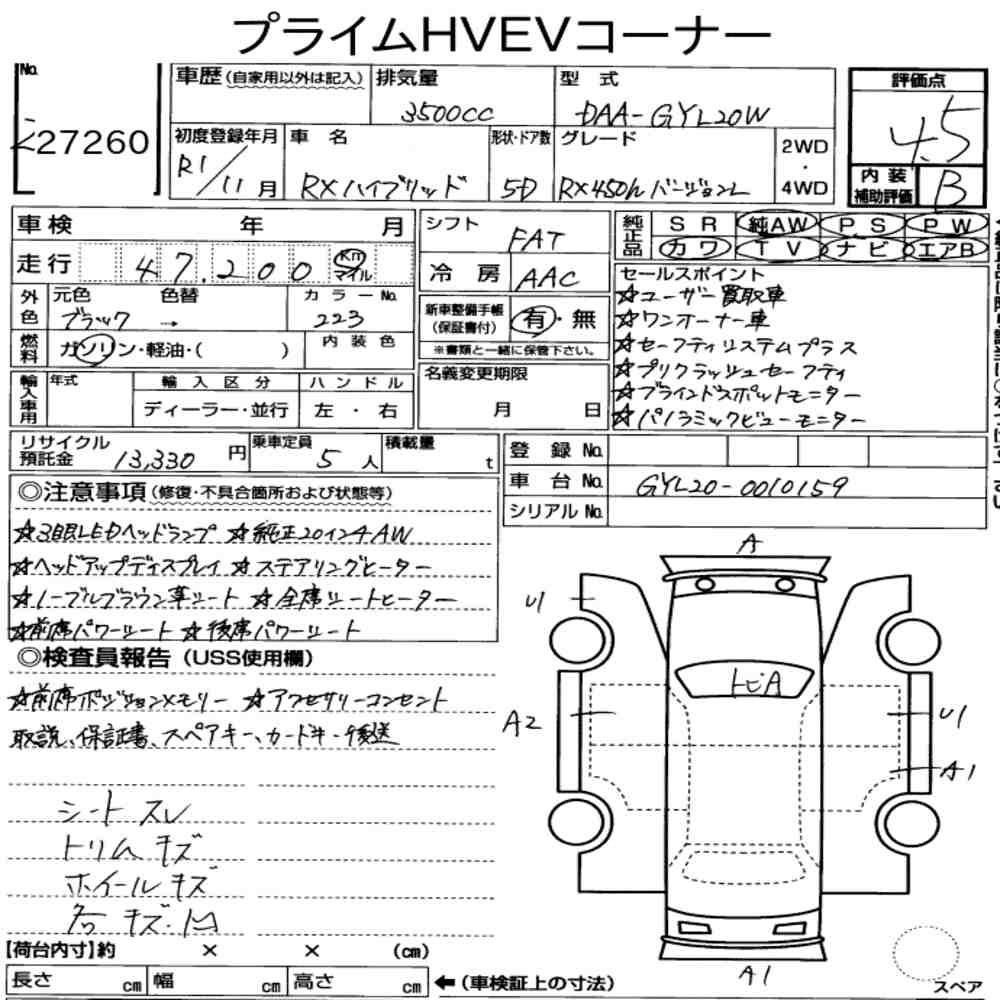 プライムHVEVコーナー
No.
27260
車歴(自家用以外は記入)
排気量
3500cc
型 式
DAA-GYL20W
評価点
4.5
内装補助評価 B
初度登録年月
R1/11月
車 名
RXハイブリッド
形状・ドア数
5D
グレード
RX450h バージョンL
2WD
・
4WD
車検 年 月
走行 47.200 Km マイル
シフト FAT
冷房 AAC
純正品 SR 純AW PS PW
カワ TV ナビ エアB
外色 元色 色替 カラーNo.
ブラック → 223
燃料 ガソリン・軽油・( )
内装色
新車整備手帳(保証書付) 有・無
※書類と一緒に保管下さい。
名義変更期限
月 日
輸入車用 年式 輸入区分 ハンドル
ディーラー・並行 左・右
セールスポイント
☆ユーザー買取車
☆ワンオーナー車
☆セーフティシステムプラス
☆プリクラッシュセーフティ
☆ブラインドスポットモニター
☆パノラミックビューモニター
リサイクル預託金 13,330円
乗車定員 5人
積載量 t
登録No.
車台No. GYL20-0010159
シリアルNo.
◎注意事項(修復・不具合箇所および状態等)
☆3眼LEDヘッドランプ ☆純正20インチAW
☆ヘッドアップディスプレイ ☆ステアリングヒーター
☆ノーブルブラウン革シート ☆全席シートヒーター
☆前席パワーシート ☆後席パワーシート
◎検査員報告(USS使用欄)
☆前席ポジションメモリー ☆アクセサリーコンセント
取説、保証書、スペアキー、カードキー後送
シート スレ
トリム キズ
ホイール キズ
キズ・凹
A
U1
トビA
A2
U1
A1
A1
スペア
【荷台内寸】約 × × (cm)
長さ cm 幅 cm 高さ cm
←(車検証上の寸法)